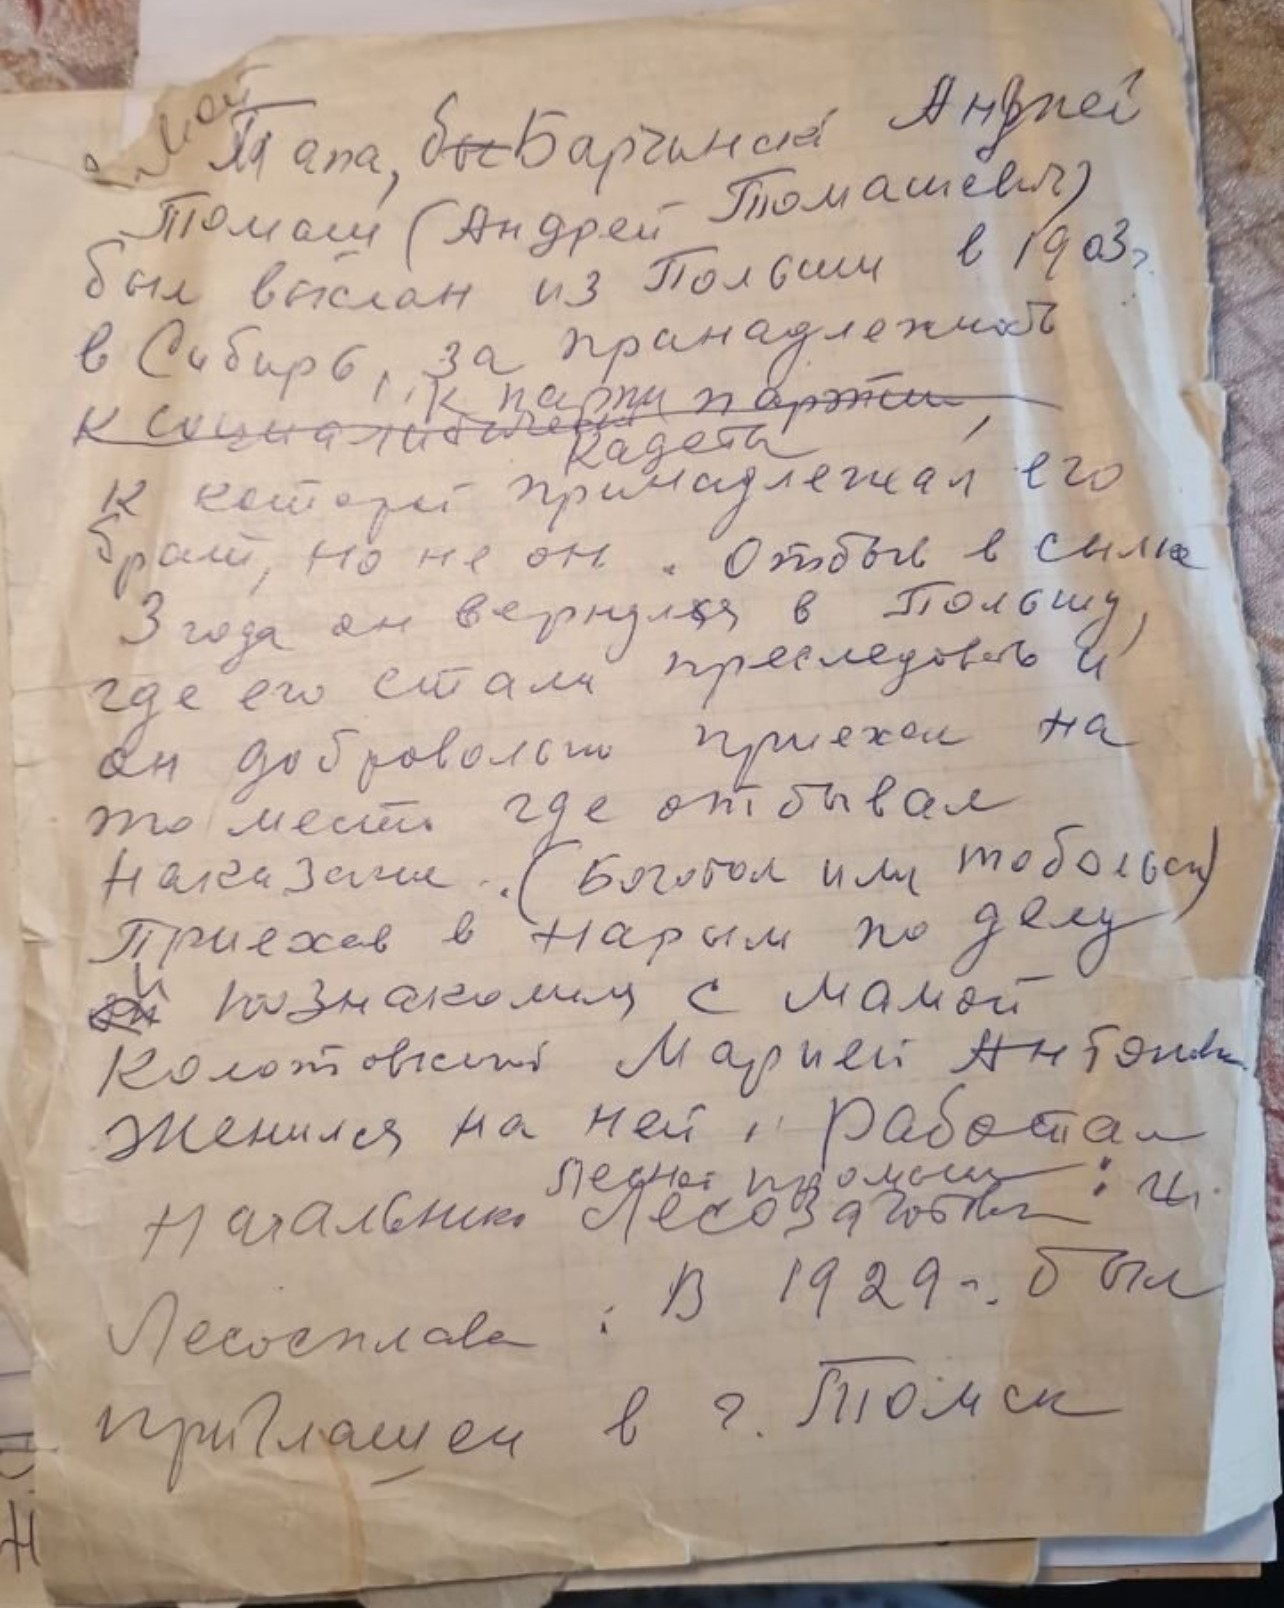 Мой
Папа, бы Барчинский Анджей
Томаш (Андрей Томашевич)
был выслан из Польши в 1903г.
в Сибирь, за принадлежность
к партии партии,
к социалистической
кадеты
к которой принадлежал его
брат, но не он. Отбыв в сылке
3 года он вернулся в Польшу,
где его стали преследовать и
он добровольно приехал на
то место где отбывал
наказание. (Боготол или Тобольск)
Приехав в Нарым по делу
он и познакомился с мамой
Колотовской Марией Антоновн.
женился на ней, работал
Лесной промыш
начальником Лесозаготовки и
Лесосплава. В 1929г. был
приглашен в г. Томск